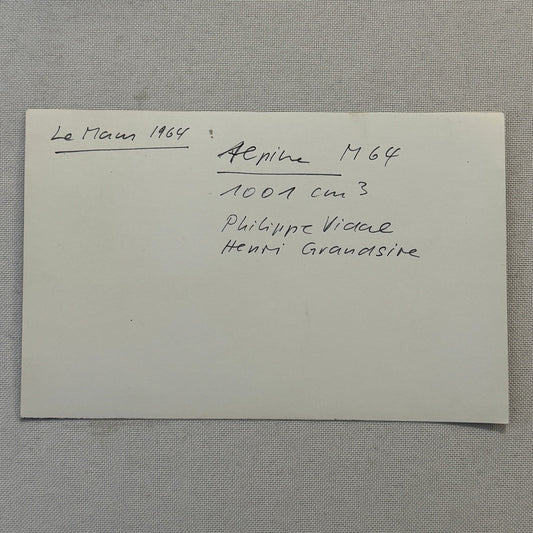 Le Mans 1964 :
Alpine M64
1001 cm3
Philippe Vidal
Henri Grandsire